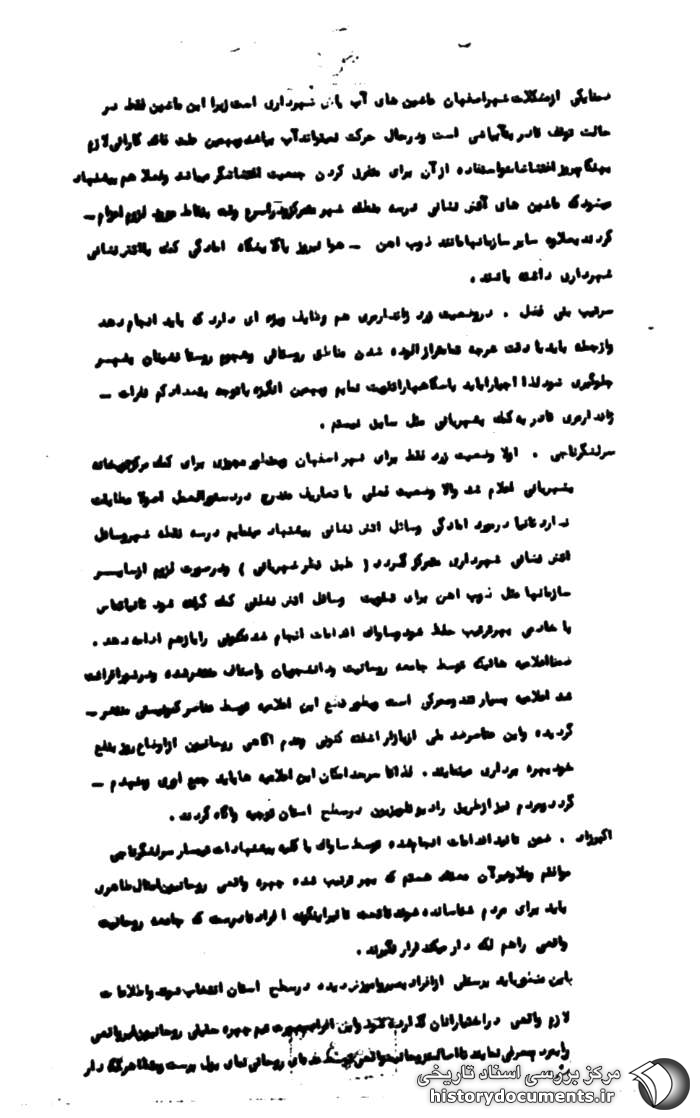 ضمنا یکی از مشکلات شهر اصفهان ماشین های آب پاش شهرداری است زیرا این ماشین فقط در
حالت توقف قادر به آبپاشی است و در حال حرکت نمیتواند آب بپاشد و بهمین علت فاقد کارائی لازم
بهنگام بروز اغتشاشات و استفاده از آن برای متفرق کردن جمعیت اغتشاشگر میباشد و فعلا هم پیشنهاد
میشود که ماشین های آتش نشانی در سه منطقه شهر متمرکز و در اسرع وقت بنقاط مورد لزوم اعزام –
گردند بعلاوه سایر سازمانها مانند ذوب آهن – هوانیروز پالایشگاه آمادگی کمک به آتش نشانی
شهرداری داشته باشند .
سرتیپ بنی فضل . در وضعیت زرد ژاندارمری هم وظایف ویژه ای دارد که باید انجام دهد
و از جمله باید با دقت هرچه تمامتر از آلوده شدن مناطق روستائی و هجوم روستا نشینان بشهر
جلوگیری نمود لذا اجبارا باید پاسگاهها را تقویت نمایم و بهمین انگیزه با توجه بتعداد کم نفرات –
ژاندارمری قادر به کمک بشهربانی مثل سابق نیستم .
سرلشگر ناجی . اولا وضعیت زرد فقط برای شهر اصفهان و بمنظور مجوزی برای کمک مرکز توپخانه
بشهربانی اعلام شد والا وضعیت فعلی با تعاریف مندرج در دستورالعمل اصولا مطابقت
ندارد ثانیا در مورد آمادگی وسائل آتش نشانی پیشنهاد مینمایم در سه نقطه شهر وسائل
آتش نشانی شهرداری متمرکز گردد ( طبق نظر شهربانی ) و در صورت لزوم از سایر
سازمانها مثل ذوب آهن برای تقویت وسائل آتش نشانی کمک گرفته شود ثالثا تماس
با خادمی بهر ترتیب حفظ شود و ساواک اقدامات انجام شده کنونی را باز هم ادامه دهد .
ضمنا اعلامیه هائیکه توسط جامعه روحانیت و دانشجویان و اصناف منتشر شده و در شورا قرائت
شد اعلامیه بسیار تند و محرکی است و بطور قطع این اعلامیه توسط عناصر کمونیستی منتشر –
گردیده و این عناصر ضد ملی از بازار آشفته کنونی و عدم آگاهی روحانیون از اوضاع روز بنفع
خود بهره برداری مینمایند . لذا تا سرحد امکان این اعلامیه ها باید جمع آوری و منهدم –
گردد و مردم نیز از طریق رادیو تلویزیون در سطح استان توجیه و آگاه گردند .
اکبرزاد . ضمن تائید اقدامات انجام شده توسط ساواک با کلیه پیشنهادات تیمسار سرلشگر ناجی
موافقم و علاوه بر آن معتقد هستم که بهر ترتیب شده چهره واقعی روحانیون امثال طاهری
باید برای مردم شناسانده شوند تاثیر اینگونه افراد نادرست که جامعه روحانیت
واقعی را هم لکه دار میکند قرار نگیرند .
باین منظور باید پرسنلی از افراد بصیر و در سطح استان انتخاب شوند و اطلاعات
لازم واقعی در اختیارانان گذارده شود و این افراد چهره حقیقی روحانیون غیر واقعی
را بمردم معرفی نمایند تا روحانیت واقعی توسط عده ای روحانی نمای پول پرست لکه دار
مرکز بررسی اسناد تاریخی
historydocuments.ir